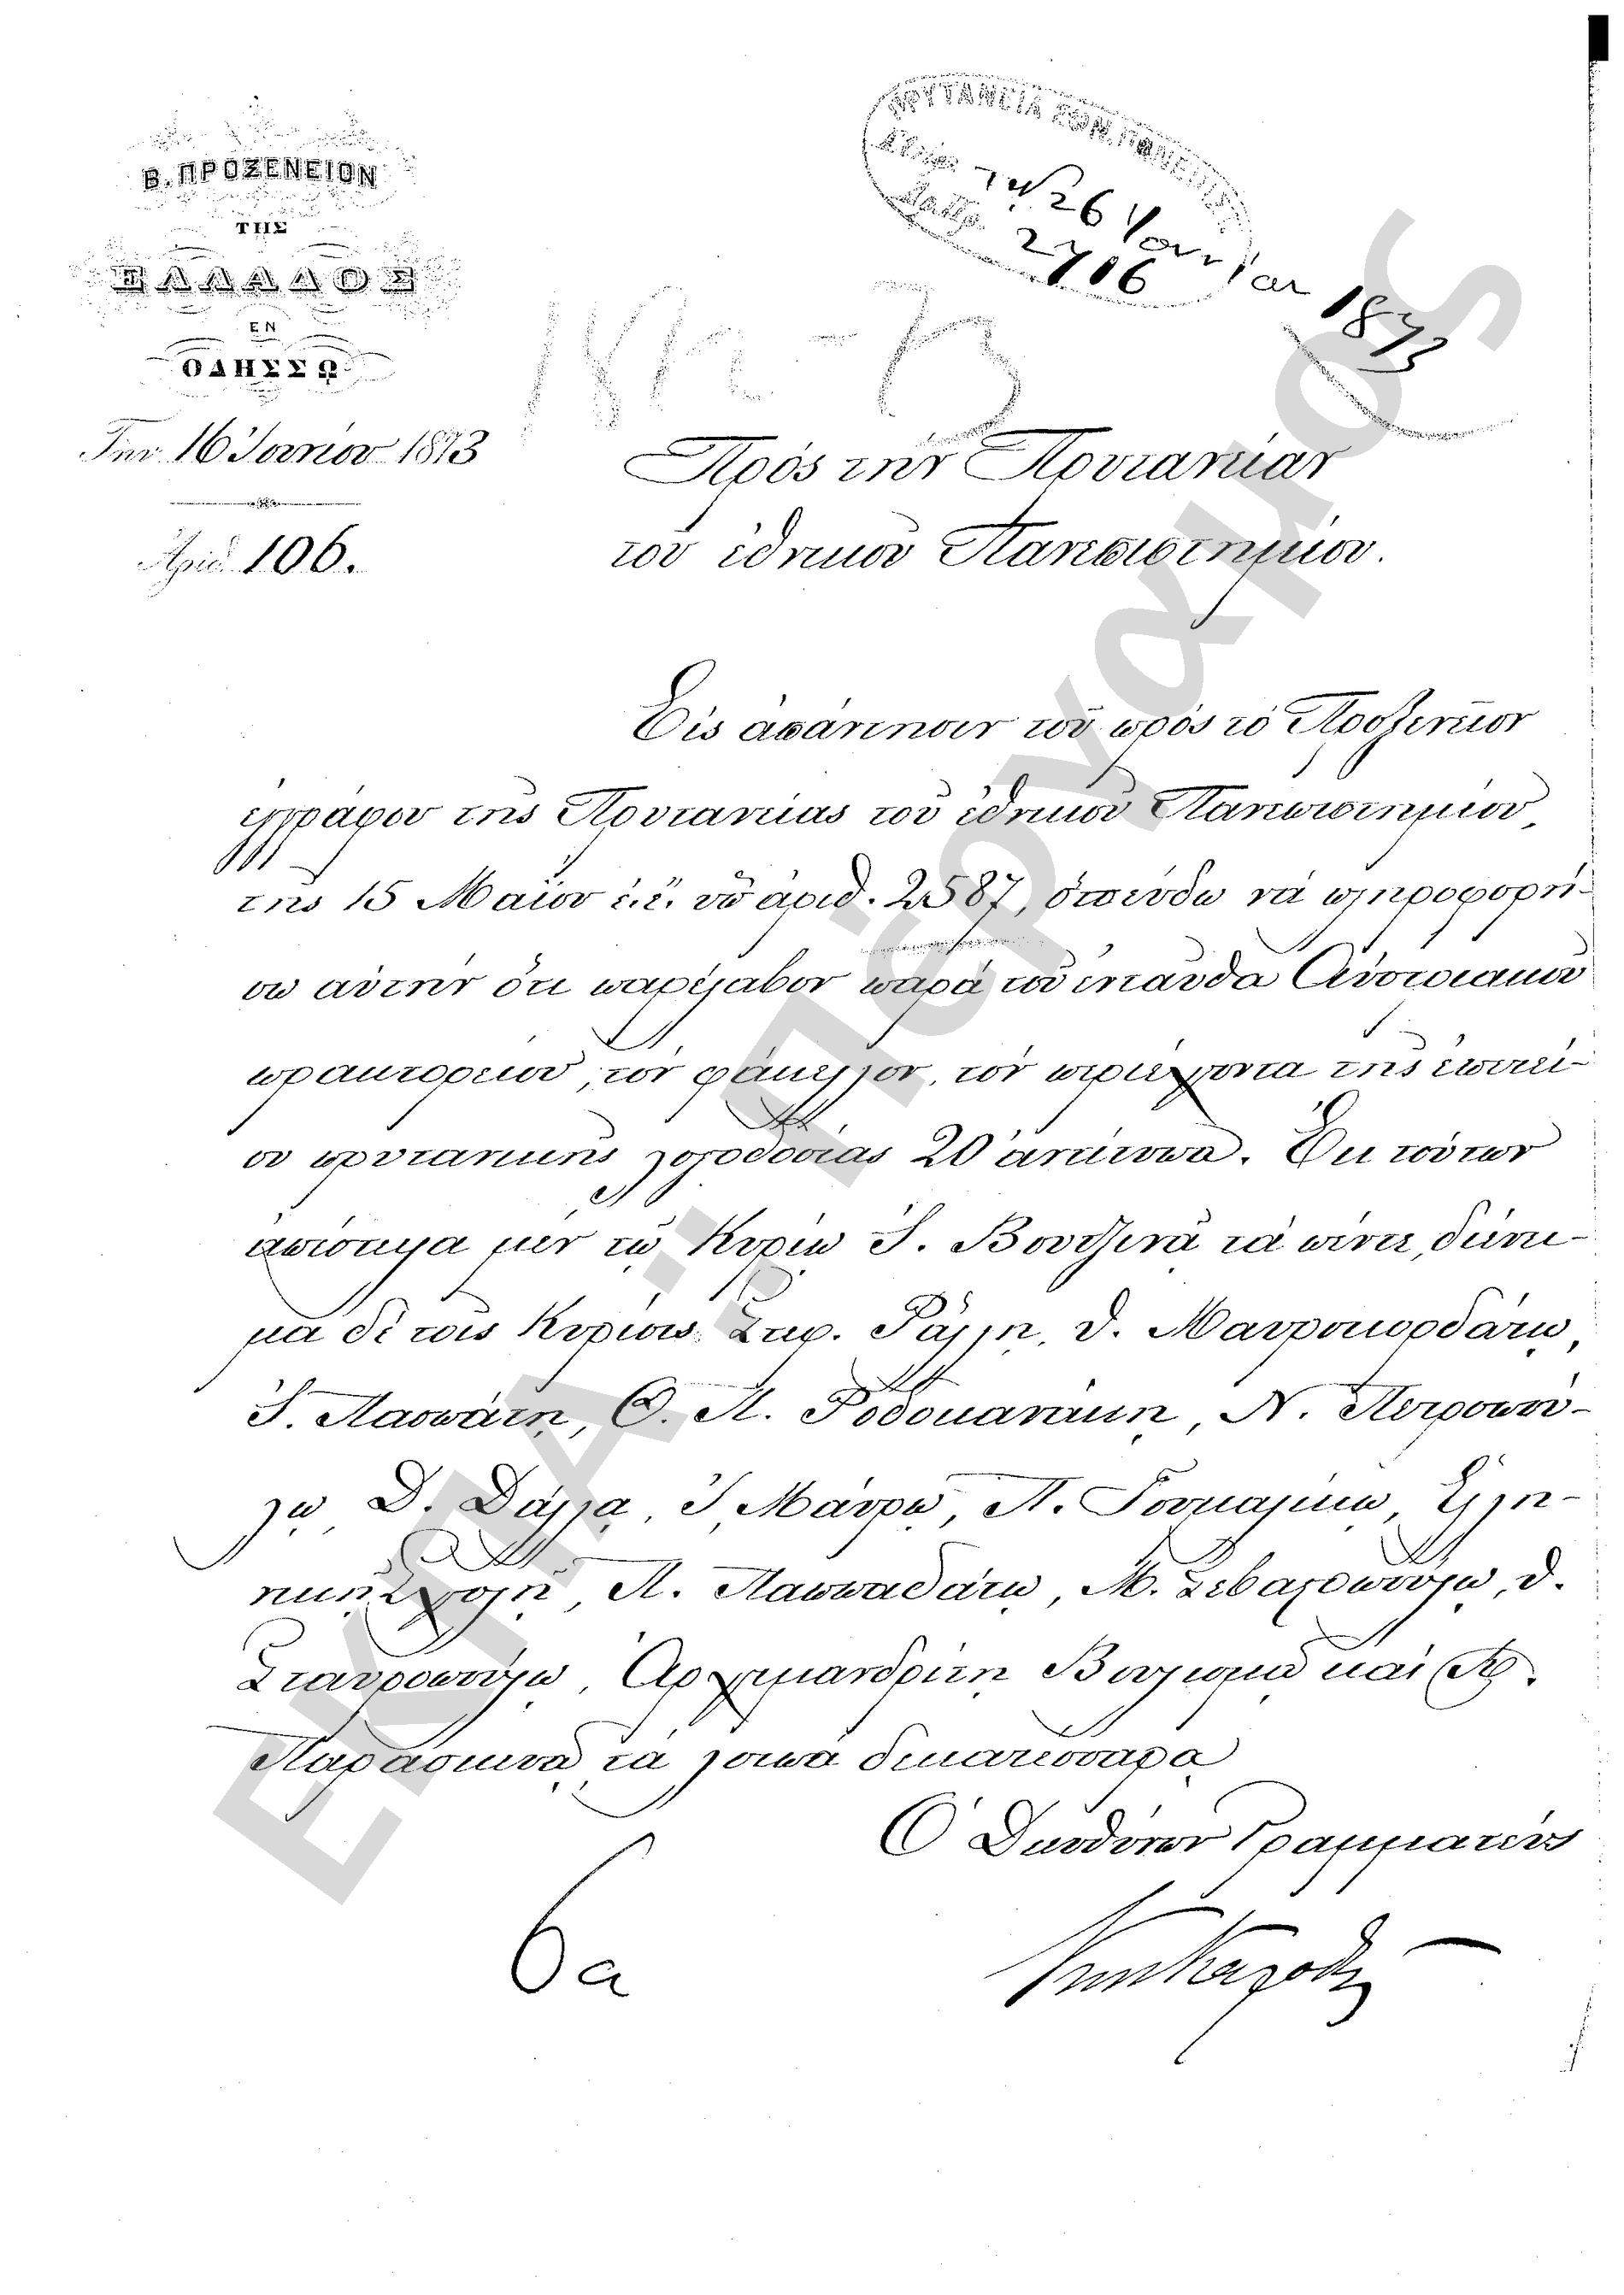 Β. ΠΡΟΞΕΝΕΙΟΝ
ΤΗΣ
ΕΛΛΑΔΟΣ
ΕΝ
ΟΔΗΣΣΩ
Τῇν 16 Ἰουνίου 1873
Ἀριθ. 106.
ΠΡΥΤΑΝΕΙΑ ΕΘΝ. ΠΑΝΕΠΙΣ.
τῇ 26 Ἰουνίου 1873
2706
1872-3
Πρὸς τὴν Πρυτανείαν
τοῦ ἐθνικοῦ Πανεπιστημίου.
Εἰς ἀπάντησιν τοῦ πρὸς τὸ Προξενεῖον
ἐγγράφου τῆς Πρυτανείας τοῦ ἐθνικοῦ Πανεπιστημίου,
τῆς 15 Μαΐου ἐ.ἔ. ὑπ ἀριθ. 2587, σπεύδω νὰ πληροφορή-
σω αὐτὴν ὅτι παρέλαβον παρὰ τοῦ ἐνταῦθα Αὐστριακοῦ
πρακτορείου, τὸν φάκελλον, τὸν περιέχοντα τῆς ἐπετεί-
ου πρυτανικῆς λογοδοσίας 20 ἀντίτυπα. Ἐκ τούτων
ἀπέστειλα μὲν τῷ Κυρίῳ Γ. Βουτζινᾷ τὰ πέντε, διένει-
μα δὲ τοῖς Κυρίοις Στεφ. Ῥάλλῃ, Θ. Μαυροκορδάτῳ,
Γ. Πασπάτῃ, Θ. Π. Ῥοδοκανάκῃ, Ν. Πετροκοκί-
νῳ, Δ. Δάλλᾳ, Ι. Μαύρῳ, Π. Γουναλάκῳ, Ἑλλη-
νικῇ Σχολῇ, Π. Παππαδάτῳ, Μ. Σεβαστοπούλῳ, Θ.
Σταυροπούλῳ, Ἀρχιμανδρίτῃ Βουλισμᾷ καὶ Ἀ.
Παράσκευᾷ τὰ λοιπὰ δεκατέσσαρα
Ὁ Διευθύνων Γραμματεὺς
6α
ΕΚΠΑ: Πέργαμος